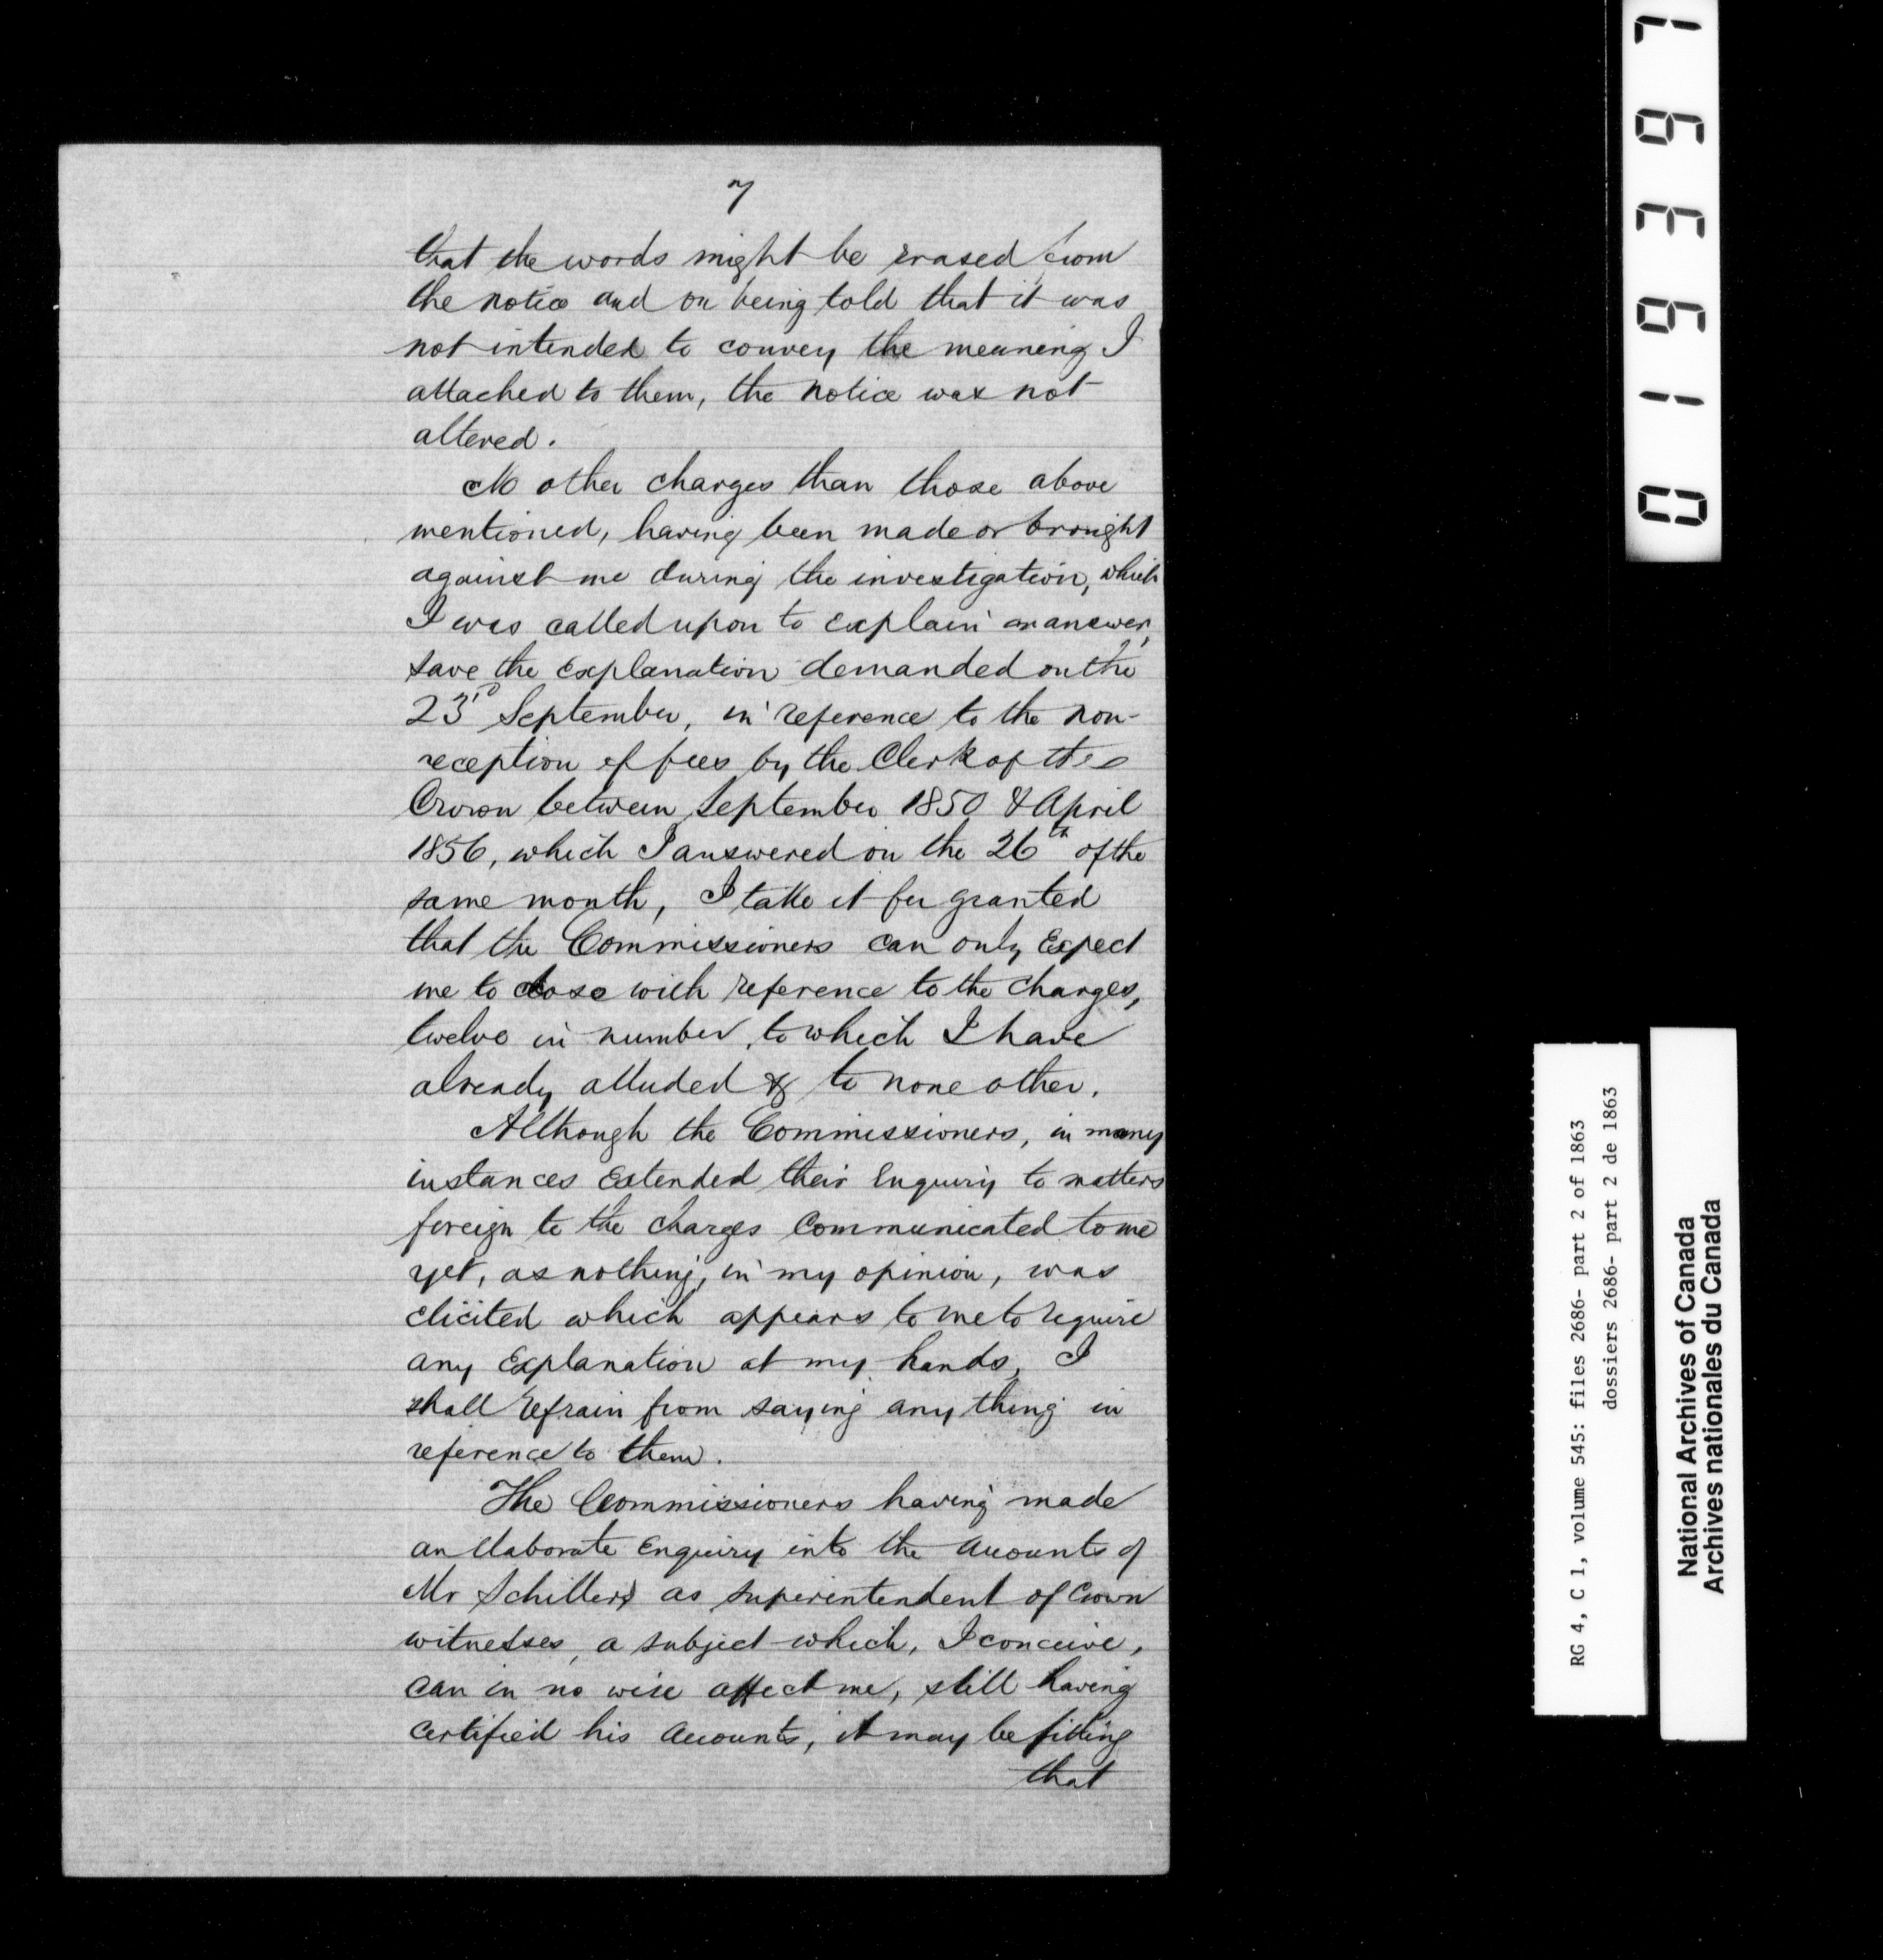 7
that the words might be erased from
the notice and on being told that it was
not intended to convey the meaning I
attached to them, the notice was not
altered.
No other charges than those above
mentioned, having been made or brought
against me during the investigation, which
I was called upon to explain or answer,
save the explanation demanded on the
23rd September, in reference to the non-
reception of fees by the Clerk of the
Crown between September 1850 & April
1856, which I answered on the 26th of the
same month, I take it for granted
that the Commissioners can only Expect
me to close with reference to the charges,
twelve in number, to which I have
already alluded & to none other.
Although the Commissioners, in many
instances Extended their Enquiry to matters
foreign to the charges Communicated to me
yet, as nothing, in my opinion, was
elicited which appears to me to require
any Explanation at my hands, I
shall refrain from saying any thing in
reference to them.
The Commissioners having made
an Elaborate Enquiry into the Accounts of
Mr Schiller, as superintendent of Crown
witnesses, a subject which, I conceive,
can in no wise affect me, still having
certified his Accounts, it may be fitting
that
019397
RG 4, C 1, volume 545: files 2686- part 2 of 1863
dossiers 2686- part 2 de 1863
National Archives of Canada
Archives nationales du Canada